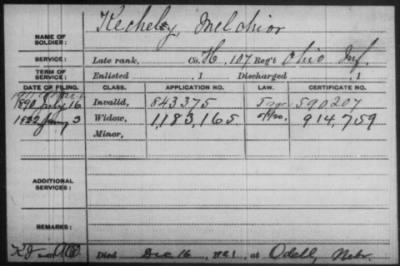 Kecheley, Melchior
NAME OF SOLDIER:
SERVICE: Late rank, Co. H, 107 Reg't Ohio Inf.
TERM OF SERVICE: Enlisted , 1 Discharged , 1
DATE OF FILING. CLASS. APPLICATION NO. LAW. CERTIFICATE NO.
1890 July 16 Invalid, 843375 590207
3 Widow, 1,183,165 914,759
Minor,
ADDITIONAL SERVICES:
REMARKS:
Died Dec 16, at Odell, Nebr.